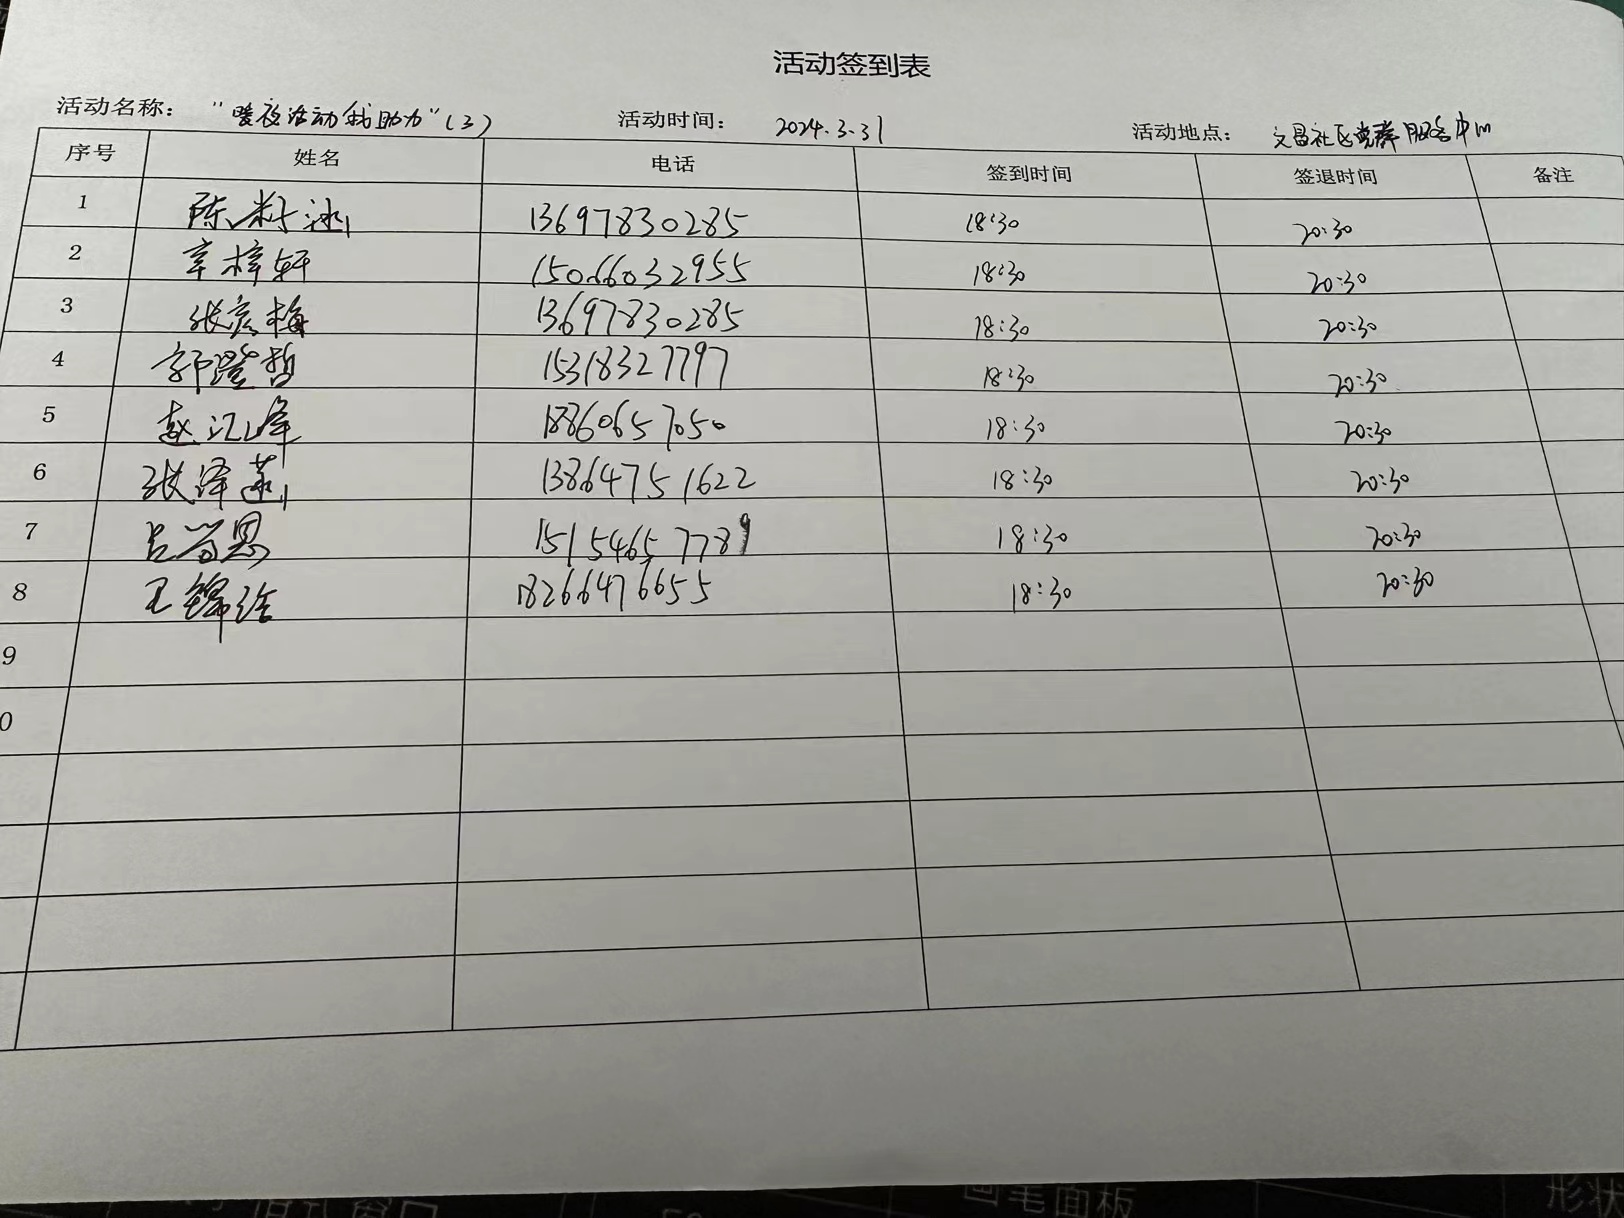 活动签到表
活动名称： “暖夜活动我助力”（3） 活动时间： 2024.3.31 活动地点： 文昌社区党群服务中心
序号 姓名 电话 签到时间 签退时间 备注
1 陈 13697830285 18:30 20:30
2 辛梓轩 15066032955 18:30 20:30
3 张彦梅 13697830285 18:30 20:30
4 郭澄哲 15318327797 18:30 20:30
5 赵汇峰 18860657050 18:30 20:30
6 张泽 13864751622 18:30 20:30
7 15154657789 18:30 20:30
8 王锦 18266476655 18:30 20:30
9
0
画笔面板 形状